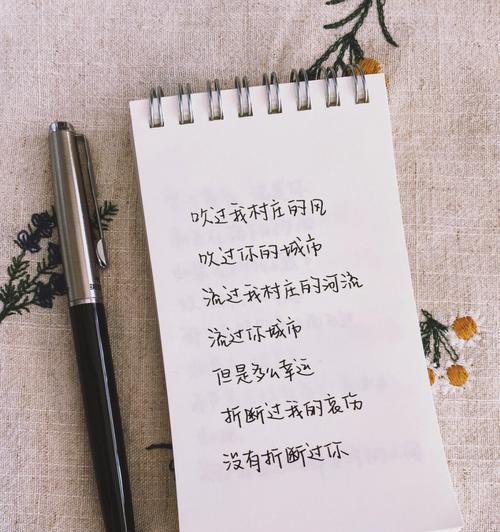 吹过我村庄的风
吹过你的城市
流过我村庄的河流
流过你城市
但是多么幸运
折断过我的哀伤
没有折断过你